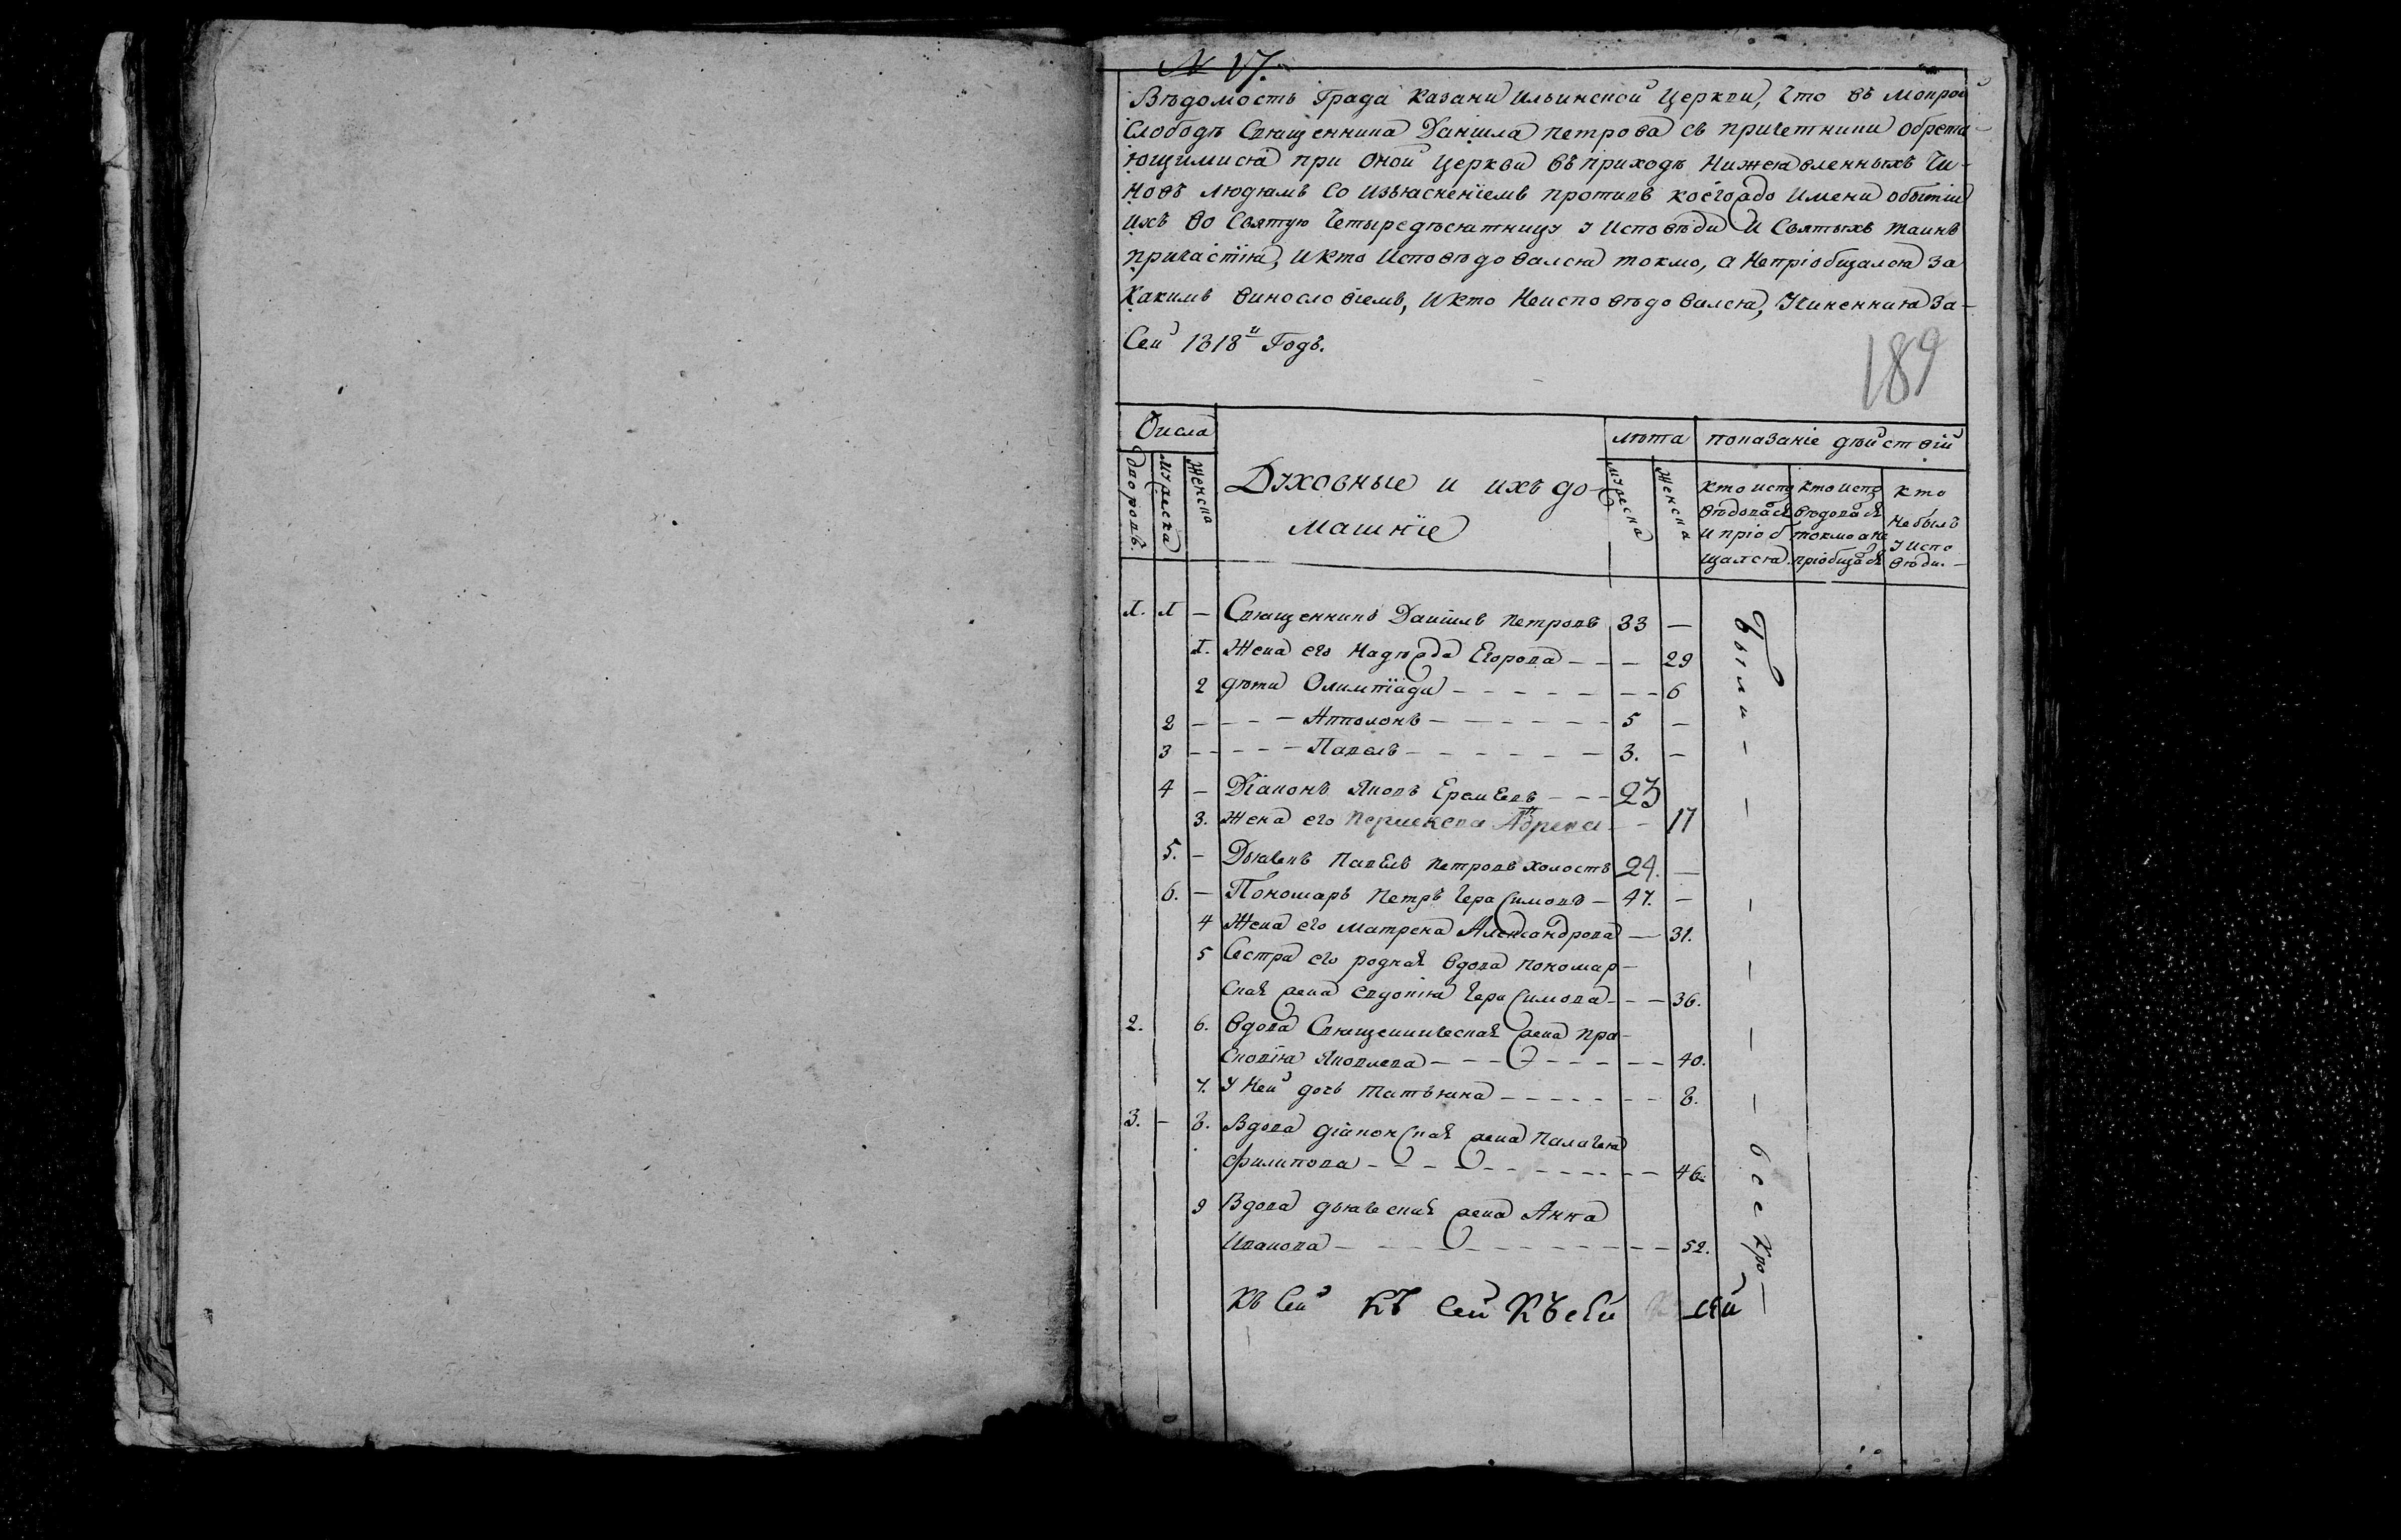 N 17.
Вѣдомость Града Казани Ильинской Церкви, что въ Мокрой
Слободѣ Священника Данiила Петрова съ причетники обрета-
ющимися при оной Церкви въ приходѣ Нижеявленныхъ Чи-
новъ людямъ со изъясненiемъ противъ коегождо Имени о бытiи
ихъ во Святую Четыредесятницу у Исповѣди и Святыхъ таинъ
причастiя, и кто Исповѣдовался токмо, а Непрiобщался за
Какимъ винословiемъ, и кто Неисповѣдовался, Учиненная за-
Сей 1818й Годъ.
189
Числа
лѣта
показанiе дѣйствiй
дворовъ.
мужеска
Женска
Духовные и ихъ до-
машнiе
мужеска
Женска
кто испо
вѣдовался
и прiоб
щался
кто испо
вѣдовался
токмо а не
прiобщался
кто
небылъ
у испо
вѣди.
1. 1 — Священникъ Данiилъ Петровъ 33 —
1. Жена его Надежда Егорова — — — 29
2 дѣти Олимпiада — — — — — — 6
2 — — — Апполонъ — — — — — 5 —
3 — — — Павелъ — — — — — 3. —
4 — Дiаконъ Яковъ Еремеевъ — — 23
3. Жена его — — 17
5. — Дьячекъ Павелъ Петровъ холостъ 24. —
6. — Пономарь Петръ Герасимовъ — 47. —
4 Жена его Матрена Александрова — 31.
5 Сестра его родная вдова пономар-
ская жена Евдокiя Герасимова — — 36.
2. 6. Вдова Священническая жена Пра-
сковiя Яковлева — — — — — — 40.
7. У Ней дочь Татьяна — — — — — 8.
3. — 8. Вдова дiаконская жена Палагея
Филипова — — — — — — — 46.
9 Вдова дьяческая жена Анна
Иванова — — — — — — — 52.
были —
Къ Сей Къ Сей Къ сей К сей